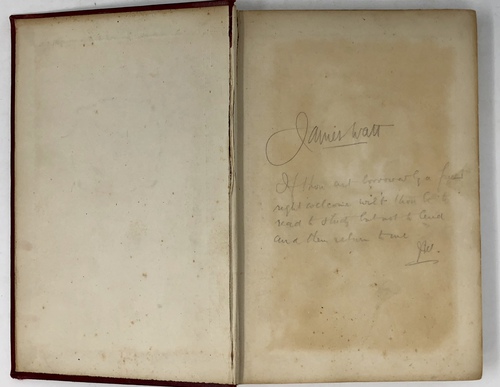 James Watt
If thou art borrowed by a friend
right welcome wilt thou be
read to study but not to lend
and then return to me
JW.